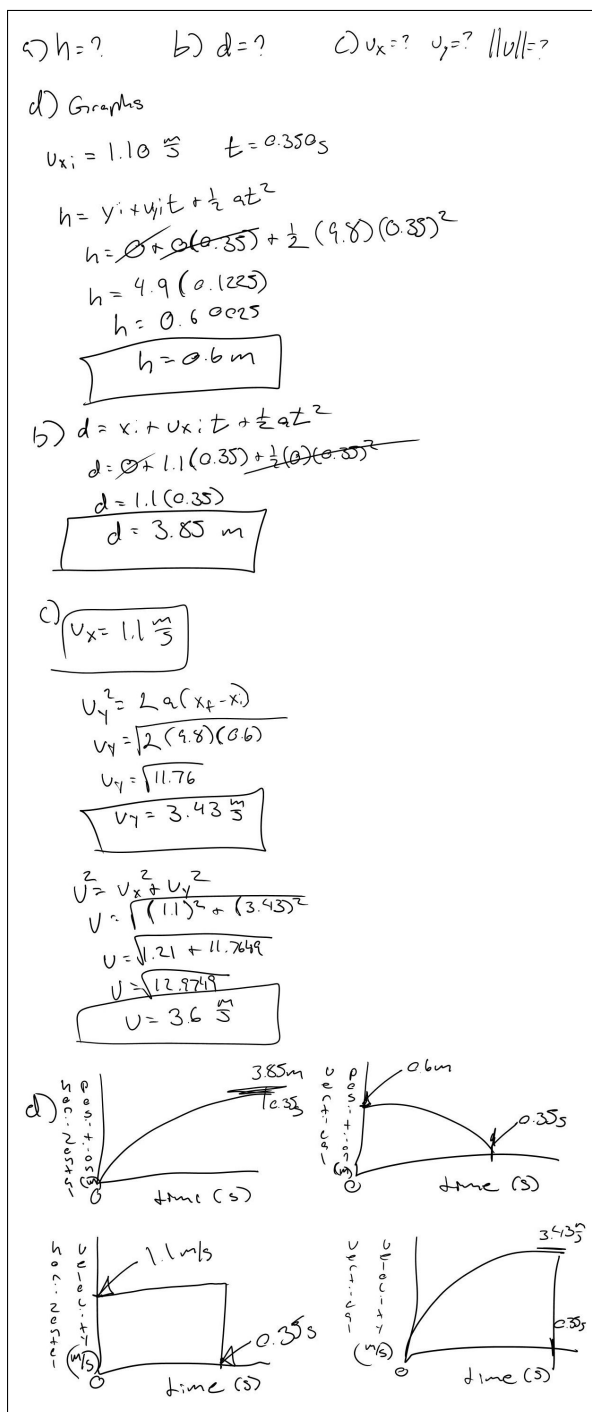 a) h=? b) d=? c) vx=? vy=? ||v||=?
d) Graphs
vxi = 1.10 m/s t = 0.350s
h = yi + vyit + 1/2 at²
h = 0 + 0(0.35) + 1/2 (9.8)(0.35)²
h = 4.9 (0.1225)
h = 0.60025
h = 0.6 m
b) d = xi + vxit + 1/2 at²
d = 0 + 1.1(0.35) + 1/2(0)(0.35)²
d = 1.1(0.35)
d = 3.85 m
c) vx = 1.1 m/s
vy² = 2a(xf-xi)
vy = √2(9.8)(0.6)
vy = √11.76
vy = 3.43 m/s
v² = vx² + vy²
v = √(1.1)² + (3.43)²
v = √1.21 + 11.7649
v = √12.9749
v = 3.6 m/s
d) horizontal position (m) 3.85m 0.35s 0 time (s)
vertical position (m) 0.6m 0.35s 0 time (s)
horizontal velocity (m/s) 1.1m/s 0.35s 0 time (s)
vertical velocity (m/s) 3.43 m/s 0.35s 0 time (s)